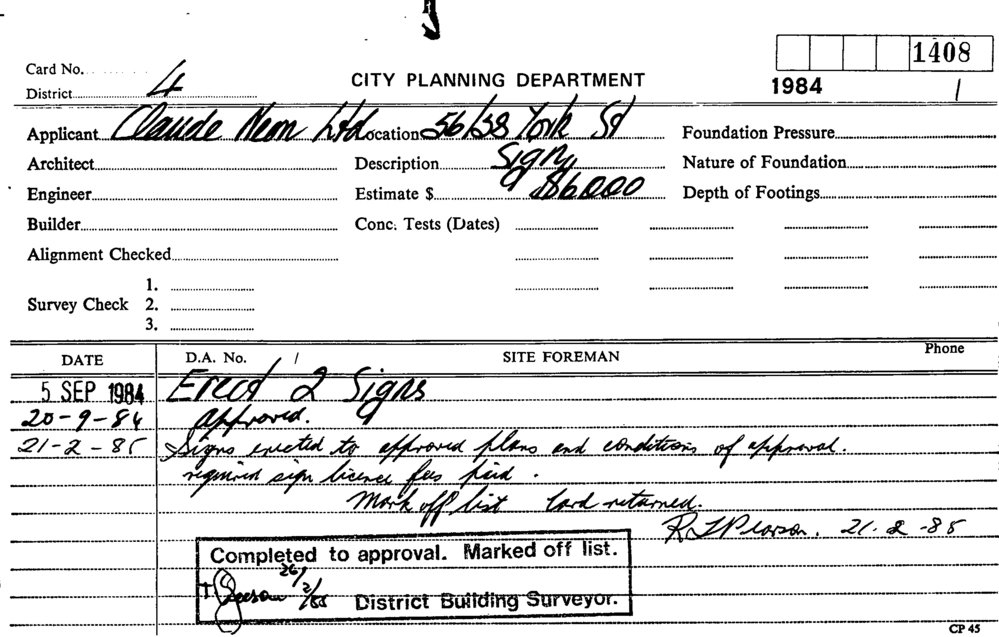 1408
Card No.
CITY PLANNING DEPARTMENT
1984 1
District 4
Applicant Claude Neon Ltd Location 56/58 York St Foundation Pressure
Architect Description Signs Nature of Foundation
Engineer Estimate $ $6000 Depth of Footings
Builder Conc. Tests (Dates)
Alignment Checked
1.
Survey Check 2.
3.
DATE D.A. No. / SITE FOREMAN Phone
5 SEP 1984 Erect 2 Signs
20-9-84 Approved.
21-2-85 Signs erected to approved plans and conditions of approval.
required sign licence fees paid.
Mark off list Card returned.
R L Pearson. 21.2-85
Completed to approval. Marked off list.
26/2/85 District Building Surveyor.
CP 45